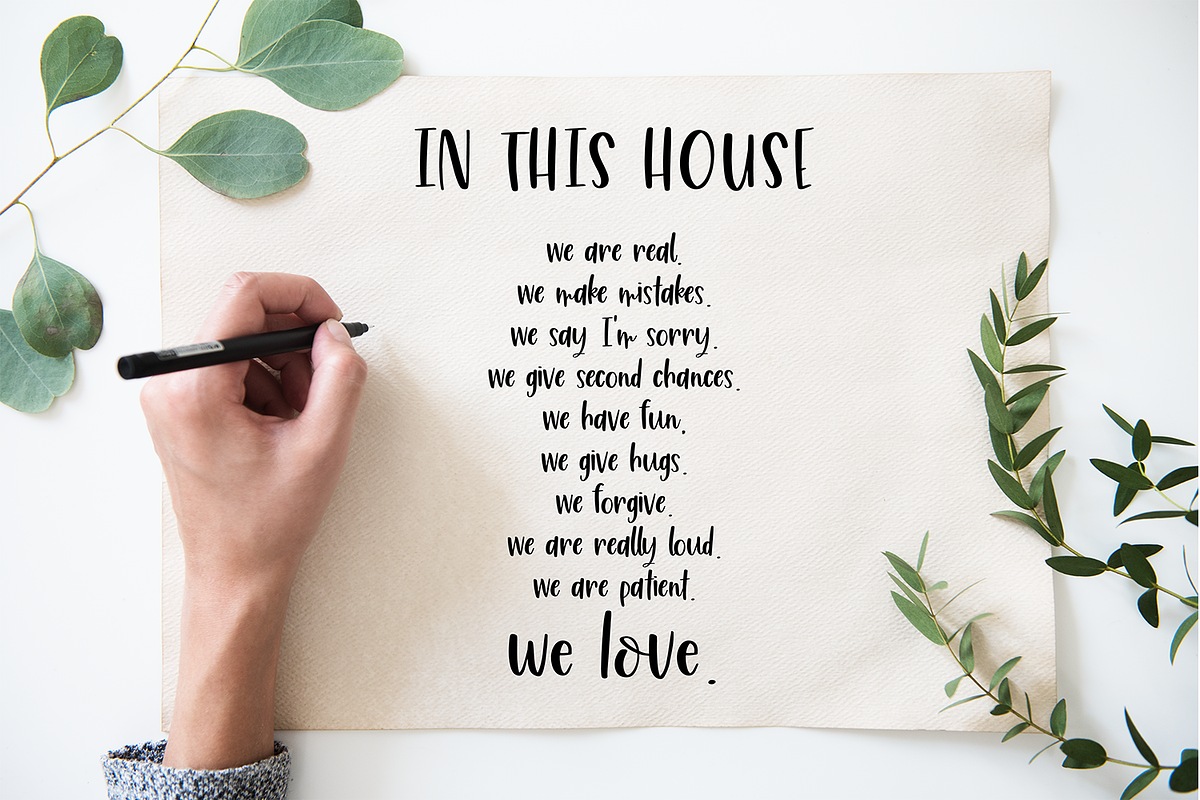 IN THIS HOUSE
we are real.
we make mistakes.
we say I'm sorry.
we give second chances.
we have fun.
we give hugs.
we forgive.
we are really loud.
we are patient.
we love.